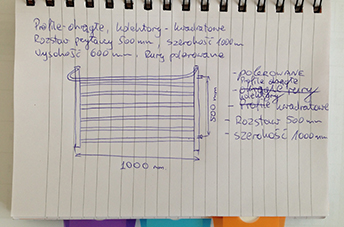 Profile - okrągłe, kolektory - kwadratowe
Rozstaw przyłączy 500 mm, szerokość 1000 m
wysokość 600 mm. Rury polerowane
500 mm
1000 mm
- POLEROWANE
Profile okrągłe
- okrągłe rury
kolektory
- Profile kwadratowe
- Rozstaw 500 mm
- szerokość 1000 mm